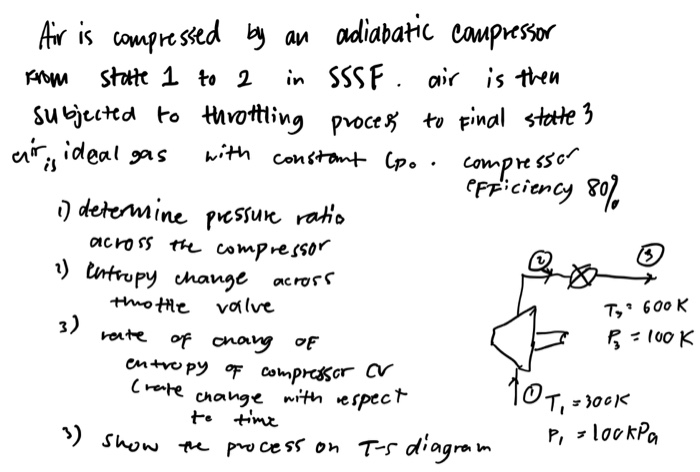 Air is compressed by an adiabatic compressor
from state 1 to 2 in SSSF. air is then
subjected to throttling process to final state 3
air is ideal gas with constant Cpo. compressor
efficiency 80%
1) determine pressure ratio
across the compressor
2) Entropy change across
throttle valve
3) rate of chang of
entropy of compressor CV
(rate change with espect
to time
3) show the process on T-s diagram
2
3
T3 = 600K
P3 = 100 K
1
T1 = 300K
P1 = 100kPa